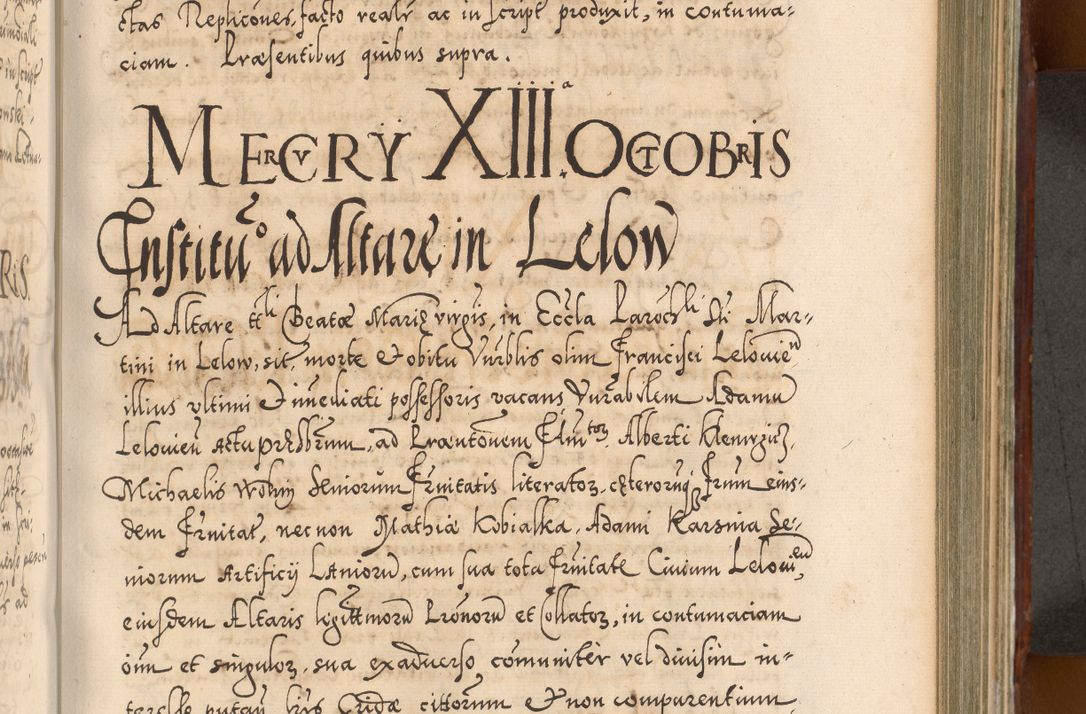 ctas Replicones, facto realr ac in script produxit, in contuma-
ciam. Præsentibus quibus supra.
MERCURY XIII.a OCTOBRIS
Institũo ad Altare in Lelow
Ad Altare ttli Beatæ Mariæ virgis, in Eccla Parochli Sti Mar-
tini in Lelow, sit. morte et obitu Vnrblis olim Francisci Lelovien
illius vltimi et imediati possessoris vacans Vnrabilem Adamũ
Lelovieñ actu presbrum, ad Præntonem Alberti
Michaelis Seniorum Frnitatis literatoꝝ, cęterorumqꝫ frum eius-
dem Frnitat, necnon Mathiæ Kobialka, Adami Karsnia Se-
niorum Artificij Lanioru, cum sua tota Frnitate Ciuium Lelovien,
eiusdem Altaris legittmorũ Pronorũ et Collatoꝝ, in contumaciam
oim et singuloꝝ, sua exaduerso comuniter vel diuisim in-
teresse putañ Cridæ cittorum et non comparentium,